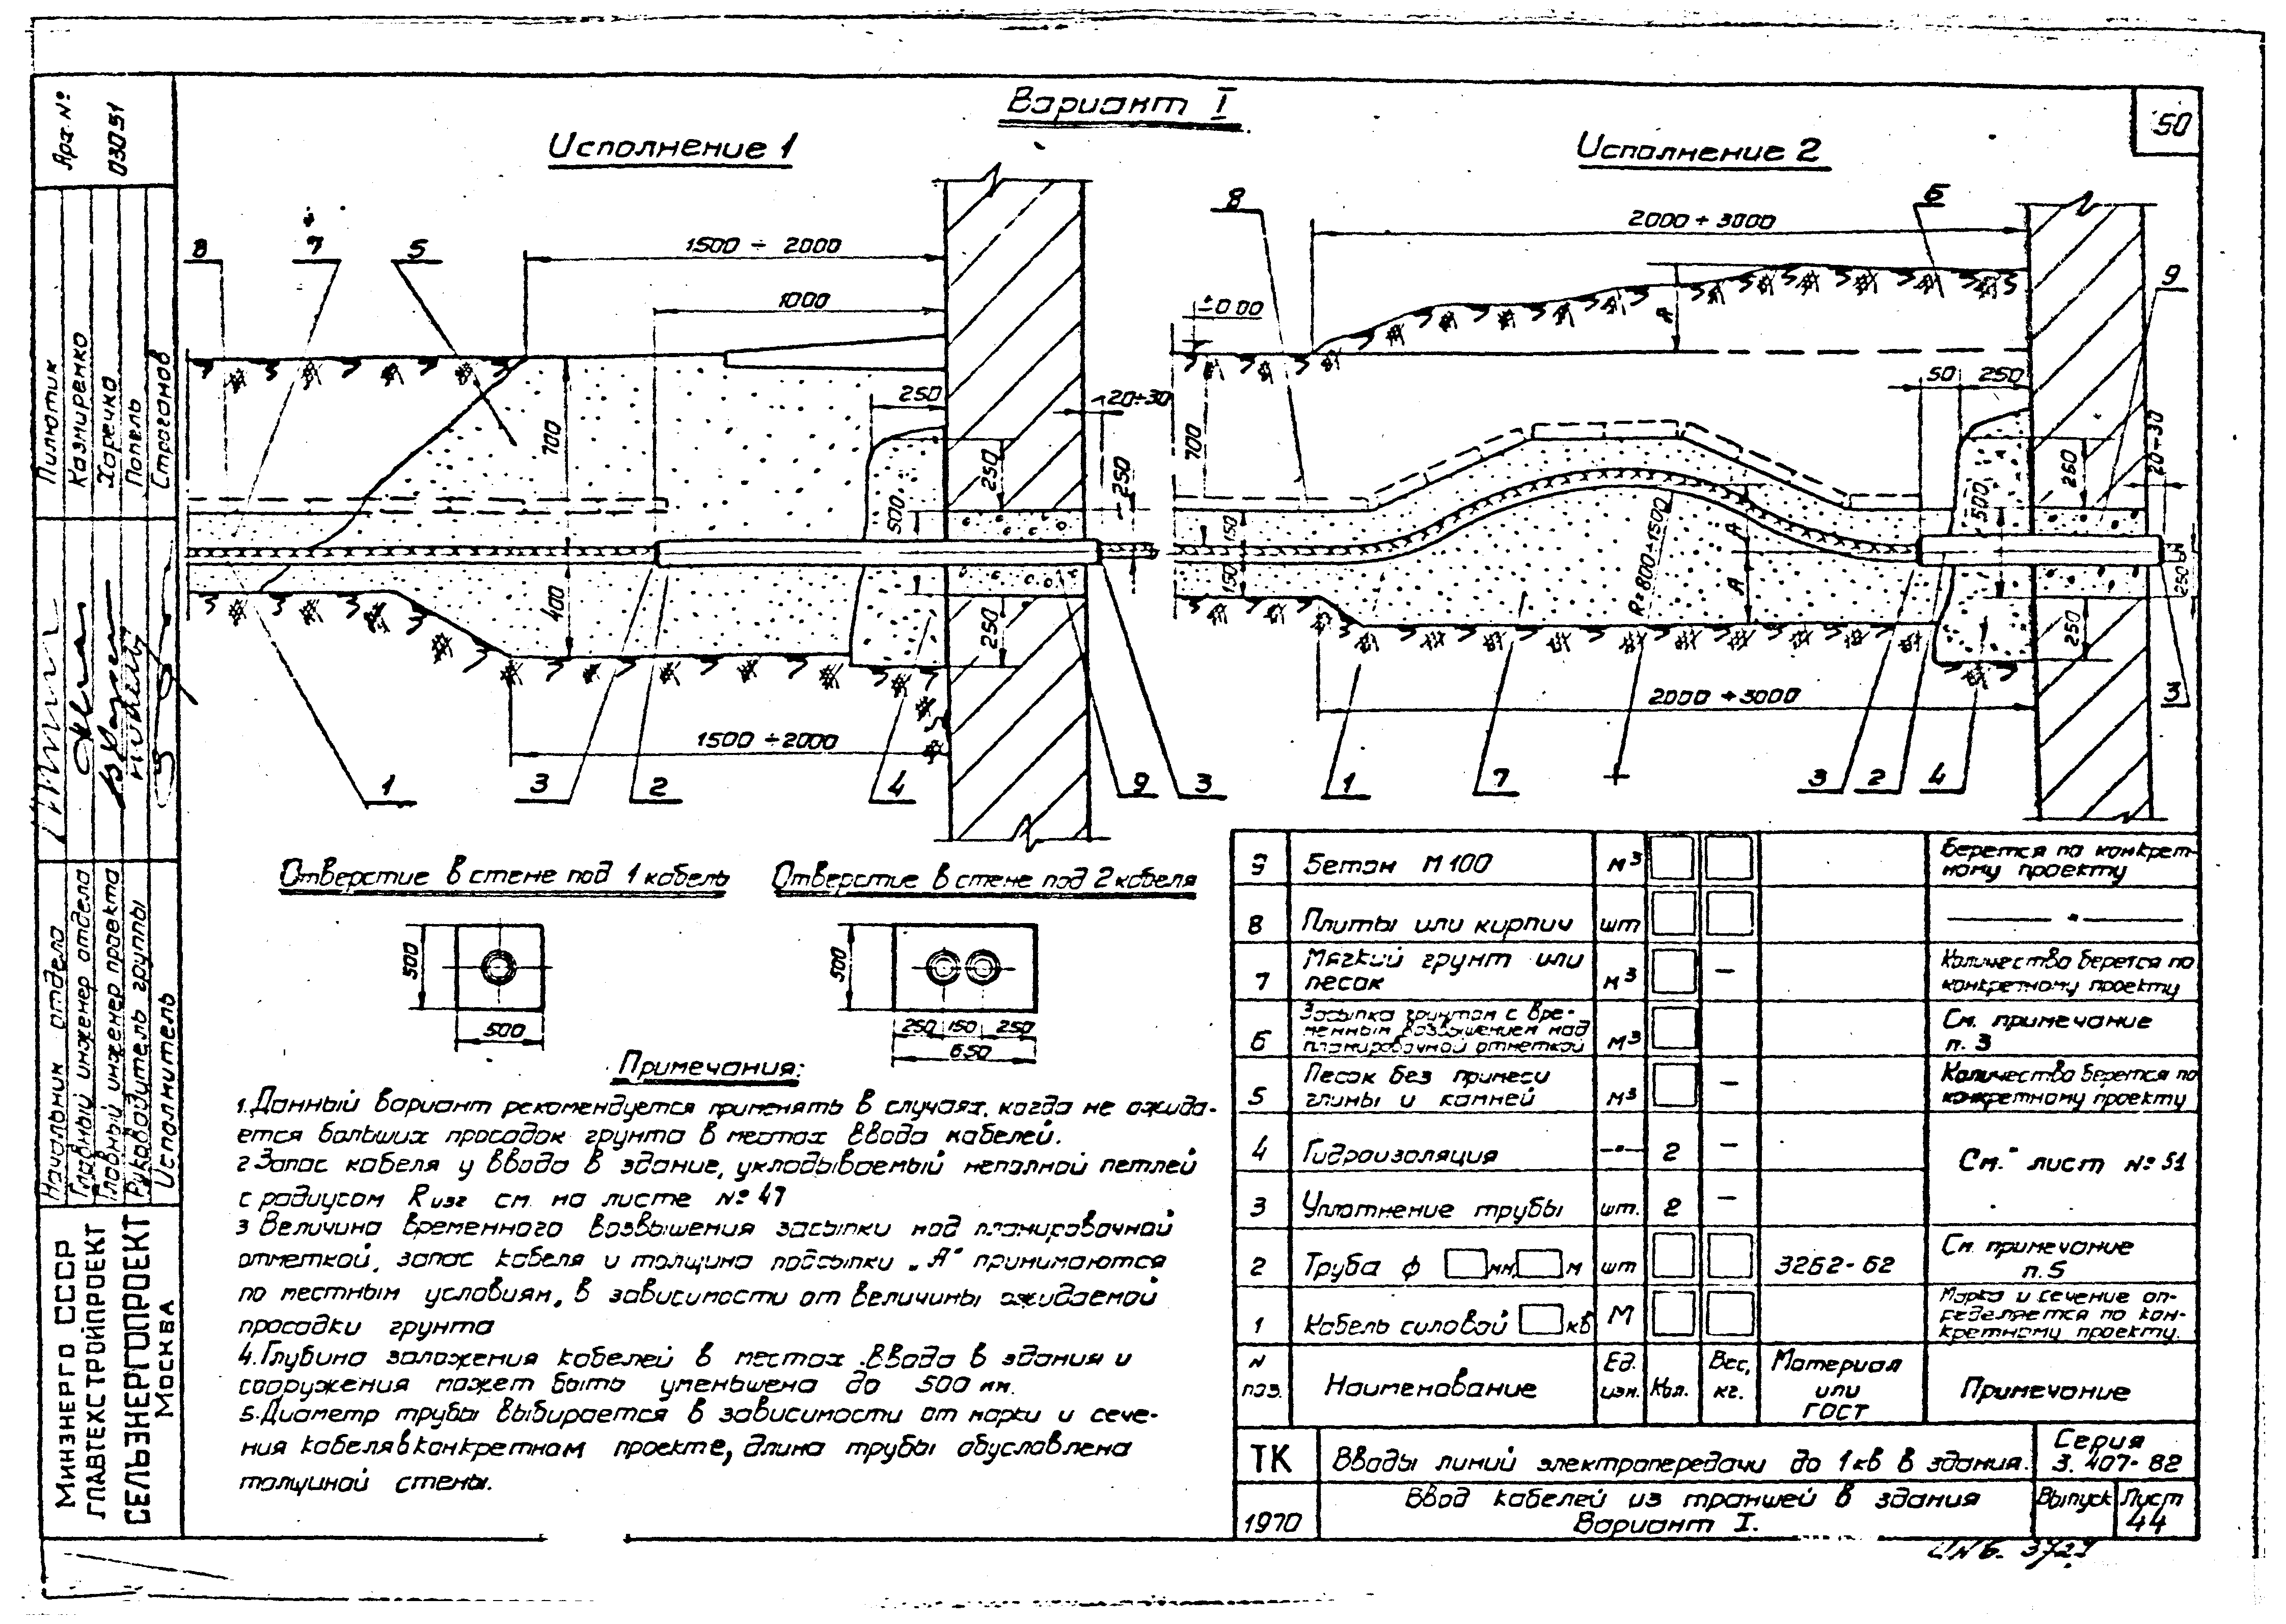 Вариант I
50
Исполнение 1
Исполнение 2
8
7
5
1500 ÷ 2000
1000
250
20÷30
700
500
250
250
400
250
1500 ÷2000
1
3
2
4
9
3
8
2000 ÷ 3000
6
9
±0.00
А
50
250
700
20÷30
260
500
150
150
R=800÷1500
А
А
250
250
2000 ÷3000
1
7
3
2
4
3
Отверстие в стене под 1 кабель
Отверстие в стене под 2 кабеля
500
500
500
250
150
250
650
Примечания:
1. Данный вариант рекомендуется применять в случаях, когда не ожида-
ется больших просадок грунта в местах ввода кабелей.
2 Запас кабеля у ввода в здание, укладываемый неполной петлей
с радиусом Rизг см. на листе № 47
3 Величина временного возвышения засыпки над планировочной
отметкой, запас кабеля и толщина подсыпки „А" принимаются
по местным условиям, в зависимости от величины ожидаемой
просадки грунта
4. Глубина заложения кабелей в местах ввода в здания и
сооружения может быть уменьшена до 500 мм.
5. Диаметр трубы выбирается в зависимости от марки и сече-
ния кабеля в конкретном проекте, длина трубы обусловлена
толщиной стены.
9 Бетон М 100 м³ Берется по конкрет-
ному проекту
8 Плиты или кирпич шт — " —
7 Мягкий грунт или
песок м³ – Количество берется по
конкретному проекту
6 Засыпка грунтом с вре-
менным возвышением над
планировочной отметкой м³ См. примечание
п. 3
5 Песок без примеси
глины и камней м³ – Количество берется по
конкретному проекту
4 Гидроизоляция –"– 2 – См. лист № 51
3 Уплотнение трубы шт. 2 –
2 Труба ф мм, м шт 3262-62 См. примечание
п. 5
1 Кабель силовой кв М Марка и сечение оп-
ределяется по кон-
кретному проекту.
N
поз. Наименование Ед.
изм. Кол. Вес,
кг. Материал
или
ГОСТ Примечание
ТК Вводы линий электропередачи до 1кв в здания. Серия
3. 407-82
1970 Ввод кабелей из траншей в здания
Вариант I. Выпуск Лист
44
Инв. 3729
Арх. №
03051
Пилютик
Казмиренко
Харечко
Попель
Строганов
Начальник отдела
Главный инженер отдела
Главный инженер проекта
Руководитель группы
Исполнитель
Минэнерго СССР
Главтехстройпроект
Сельэнергопроект
Москва